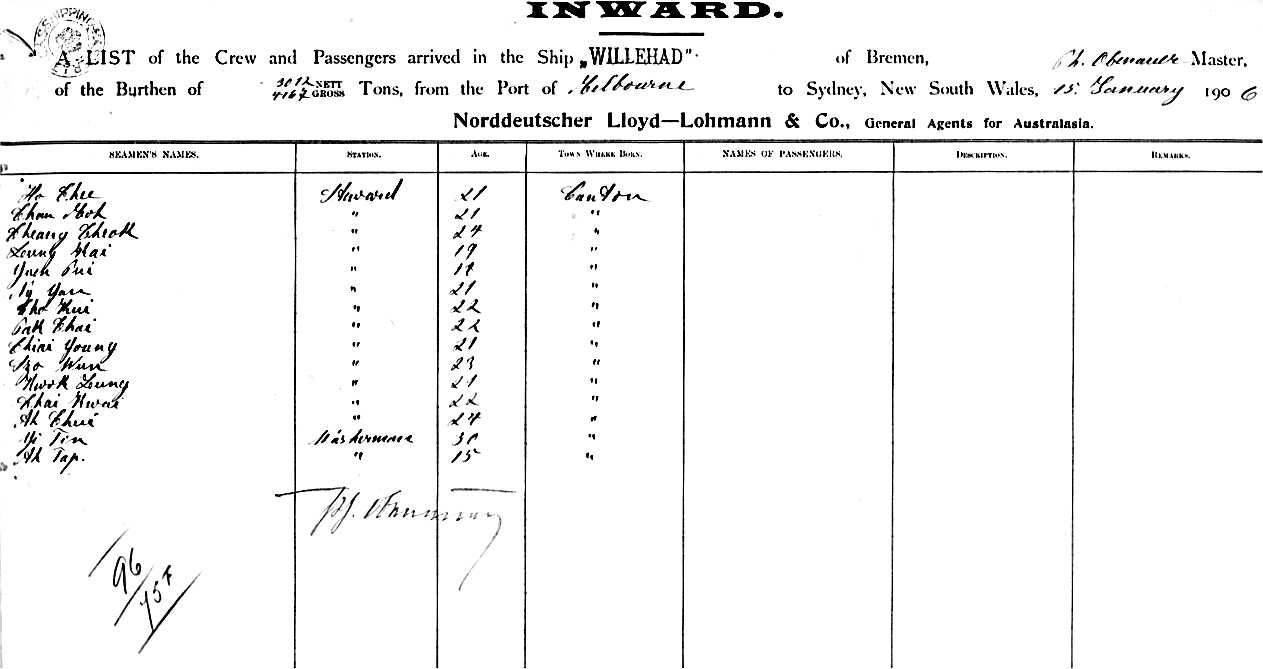 INWARD.
A LIST of the Crew and Passengers arrived in the Ship „WILLEHAD" of Bremen, Ph. Obenauer Master,
of the Burthen of 3012 NETT 4167 GROSS Tons, from the Port of Melbourne to Sydney, New South Wales, 15. January 1906
Norddeutscher Lloyd—Lohmann & Co., General Agents for Australasia.
SEAMEN'S NAMES. STATION. AGE. TOWN WHERE BORN. NAMES OF PASSENGERS. DESCRIPTION. REMARKS.
Ho Chee Steward 21 Canton
Chan Mok " 21 "
Cheang Cheok " 24 "
Leung Hai " 19 "
Yuen Pui " 18 "
Ng Yau " 21 "
Cho Kui " 22 "
Pak Chai " 22 "
Chiai Young " 21 "
Szo Wun " 23 "
Kwok Leung " 21 "
Chai Kwai " 22 "
Ah Chui " 24 "
Yi Tin Washerman 30 "
Ah Tap. " 15 "
96